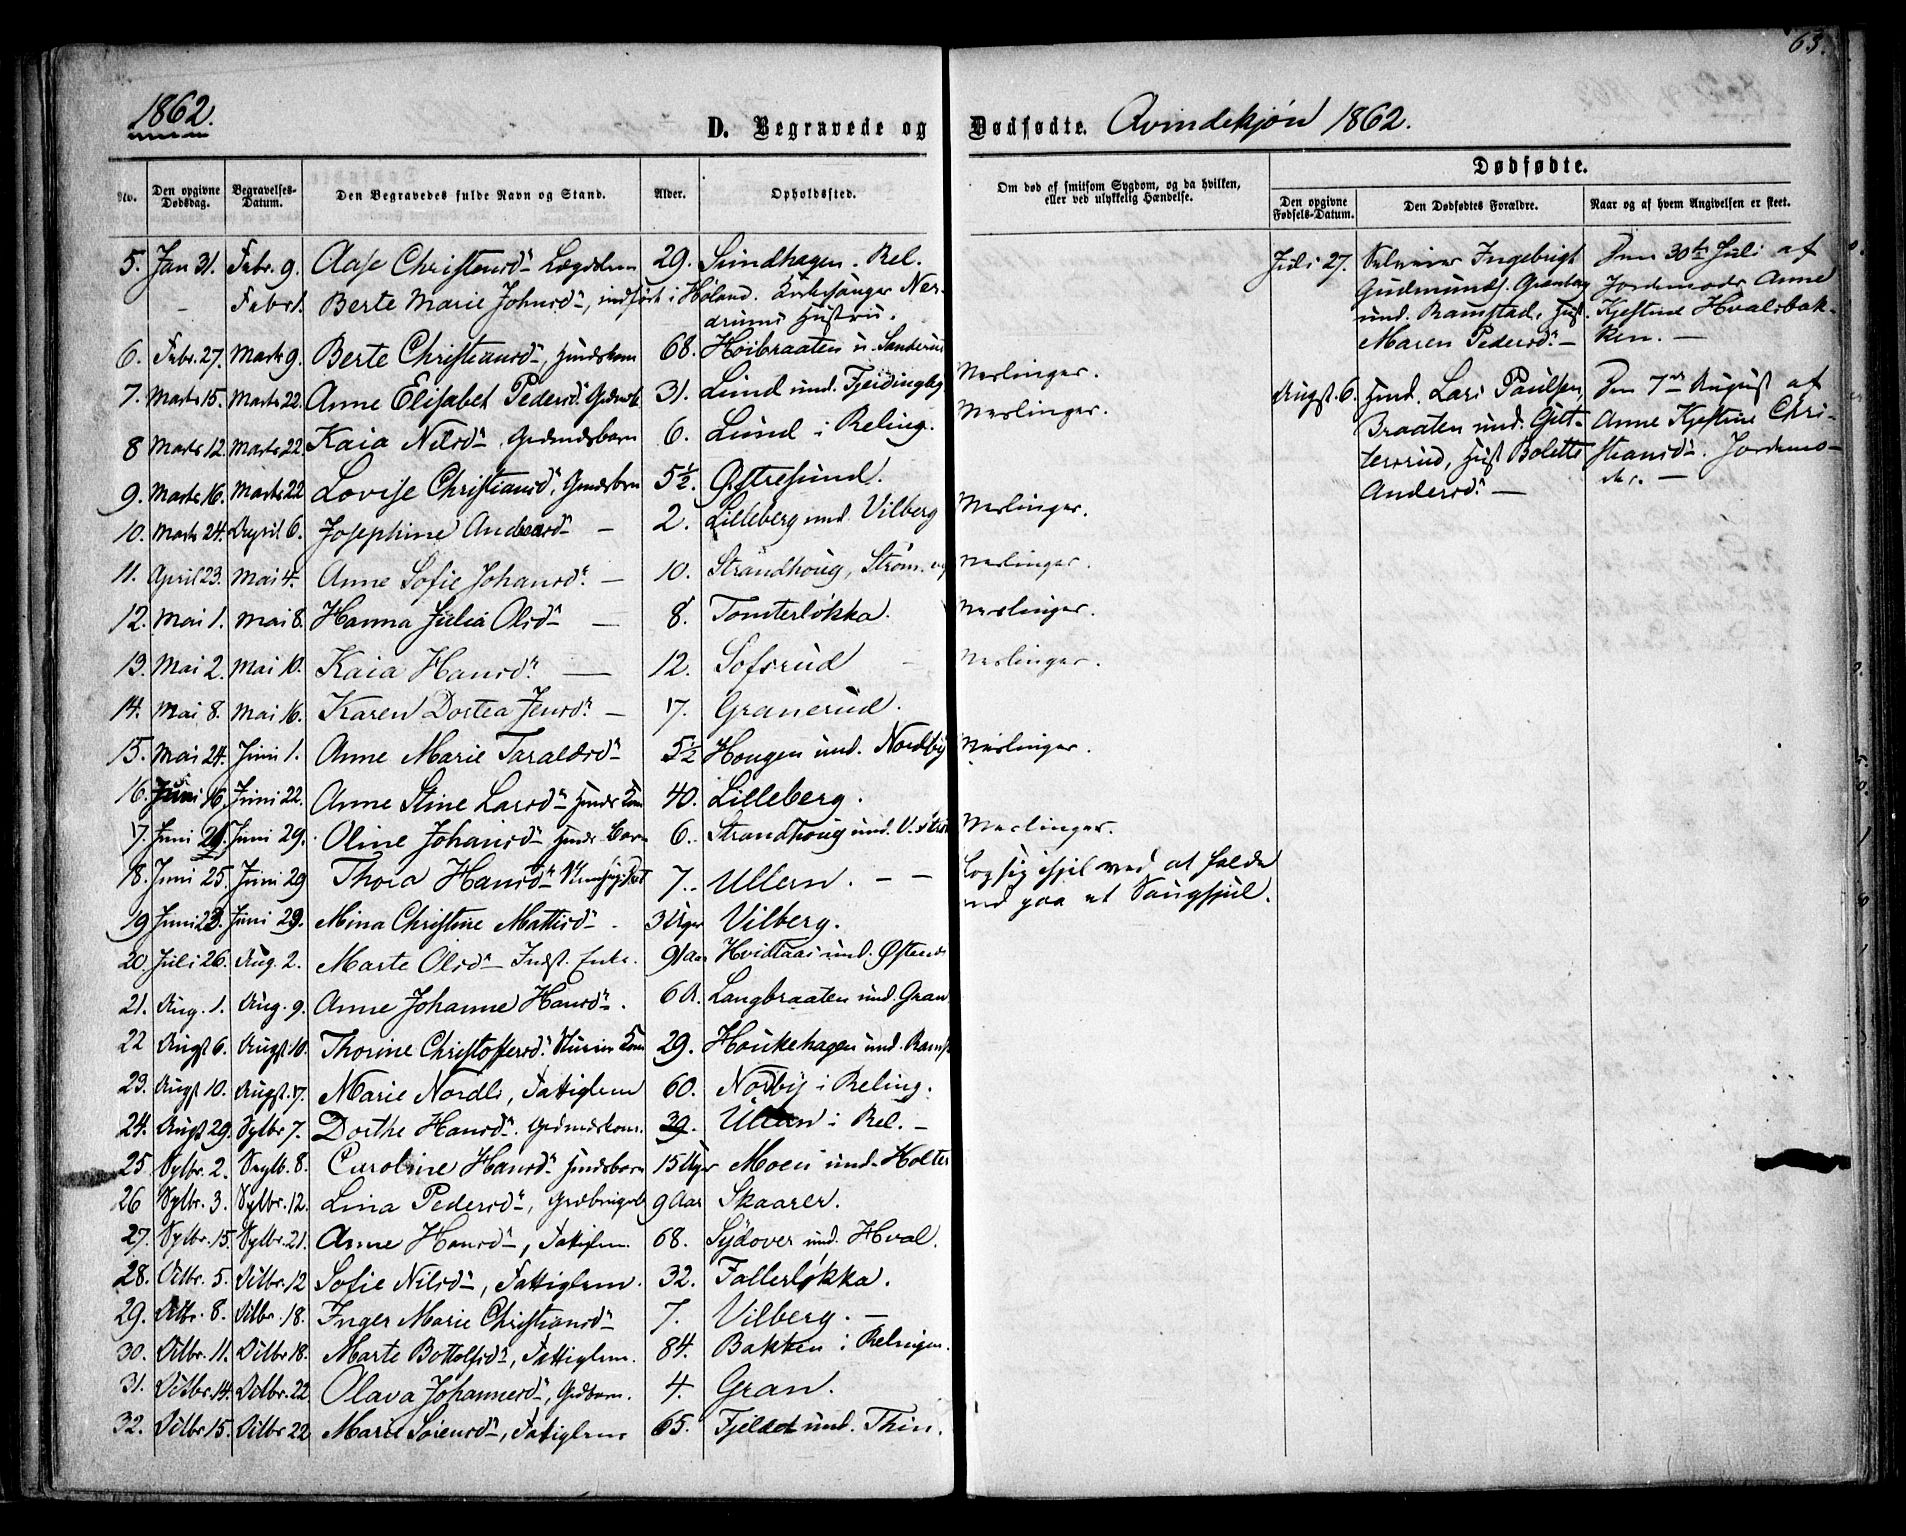 63.
1862.
D. Begravede og Dødfødte. Qvindekjøn 1862.
Dødfødte.
No. Den opgivne Dødsdag. Begravelses-Datum. Den Begravedes fulde Navn og Stand. Alder. Opholdssted. Om død af smitsom Sygdom, og da hvilken, eller ved ulykkelig Hændelse. Den opgivne Fødsels-Datum. Den Dødfødtes Forældre. Naar og af hvem Angivelsen er skeet.
5. Jan 31. Febr. 9. Aase Christensd. Lægdslem 29. Sundhagen. Rel.
- Febr 1. Berte Marie Johnsd., indført i Høland. Kirkesanger Ner-
drums Hustru.
6. Febr. 27. Marts 9. Berte Christiansd., Huusmdskone 68. Høibraaten u. Sanderud
7. Marts 15. Marts 22. Anne Elisabet Pedersd. 31. Lund und. Fjeldingby Meslinger.
8 Marts 12. Marts 22 Kaia Nilsd., Grdmdsbarn 6. Lund i Reling. Meslinger.
9. Marts 16. Marts 22 Lovise Christiansd., Grmdsbrn 5½. Østresund.
10. Marts 24. April 6. Josephine Andersd. — 2. Lilleberg und. Vilberg Meslinger.
11. April 23. Mai 4. Anne Sofie Johansd. — 10. Strandhoug, Strøm Meslinger.
12. Mai 1. Mai 8. Hanna Julia Olsd. — 8. Tomterløkka. Meslinger.
13. Mai 2. Mai 10. Kaia Hansd. — 12. Sofsrud - Meslinger.
14. Mai 8. Mai 16. Karen Dortea Jensd. — 7. Granerud.
15. Mai 24. Juni 1. Anne Marie Taraldsd. 5½ Hougen und. Nordby Meslinger.
16. Juni 16. Juni 22. Anne Stine Larsd. Huusmds Kone 40. Lilleberg.
17. Juni 21. Juni 29. Oline Johansd. Huusmds Barn 6. Strandhoug und. V. Strøm Meslinger.
18. Juni 25. Juni 29 Thora Hansd. 7. Ullern. — — slog sig ihjel ved at falde
ned paa et Saughjul.
19 Juni 23. Juni 29. Mina Christine Mattisd. 3 Uger Vilberg.
20. Juli 26. Aug. 2. Marte Olsd. Indst. Enke. 91 Aar und. Østen
21. Aug. 1. Aug. 9. Anne Johanne Hansd. 6 A. Langbraaten und. Gran
22 Augst 6. Augst 10. Thorine Christoffersd. 29. Houkehagen und. Ramst
23. Augst 10. Augst. 17. Marie Nordli, Fattiglem 60. Nordby i Reling.
24. Augst 29. Sptbr 7. Dorthe Hansd. Grdmdskone. 39. Ullern i Rel. —
25 Sptbr. 2. Septb. 8. Caroline Hansd. Huusmdsbarn 15 Uger Moen und. Holter
26 Sptbr. 3. Sptbr. 12. Lina Pedersd., 9 Aar Skaarer.
27. Sptbr. 15. Sptbr. 21. Anne Hansd., Fattiglem. 68. Sydover und. Hval.
28. Octbr. 5. Octbr. 12 Sofie Nilsd., Fattiglem. 32. Fallerløkka.
29. Octbr. 8. Octbr. 18. Inger Marie Christiansd. 7. Vilberg. —
30. Octbr. 11. Octbr 18. Marte Bottolfsd., Fattiglem. 84. Bakken i Relingen.
31. Octbr. 14. Octbr. 22 Olava Johannesd., Grdbarn. 4. Gran.
32. Octbr 15. Octbr 22 Marie Sørensd., Fattiglem 65. Fjeldet und. Thiu.
Juli 27. Selveier Ingebrigt
Gudmunds.
und. Ramstad, Hust.
Maren Pedersd. —
Den 30te Juli af
Jordemoder Anne
Kjestine Hvalsbak-
ken. —
Augst. 6. Husmd. Lars Paulsen,
Braaten und. Gut-
tersrud, Hust Bolette
Andersd. —
Den 7de August af
Anne Kjestine Chri-
stiansd. Jordemo-
der. —